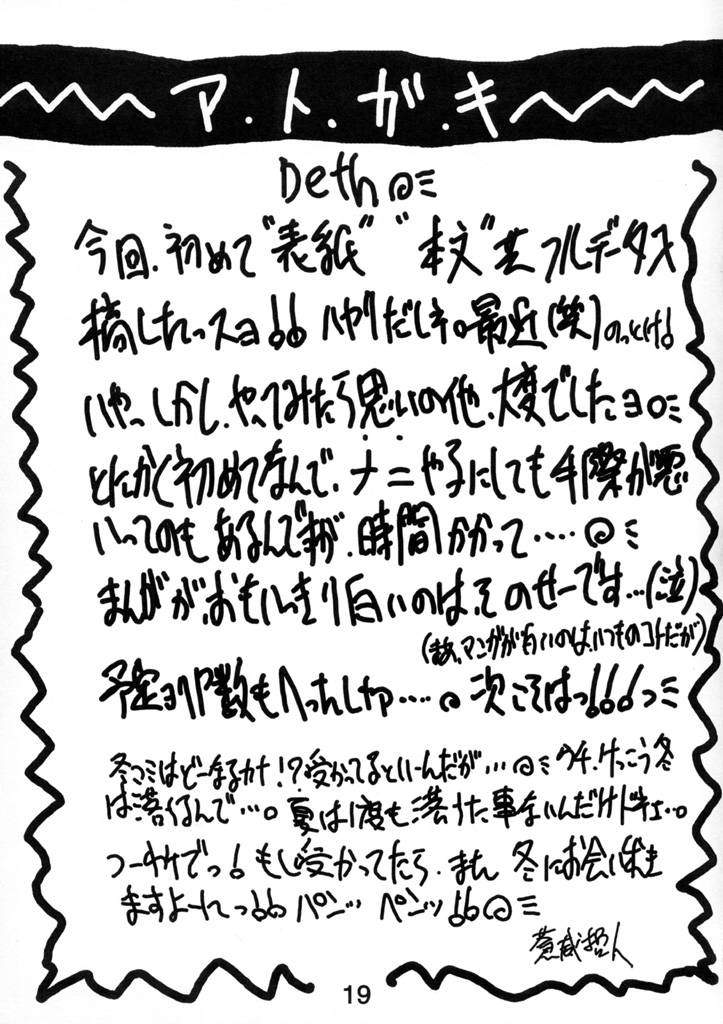 ア．ト．ガ．キ
Deth
今回、初めて“表紙”“本文”共フルデータ入
稿したっスョ!! ハヤリだしネ。最近(笑)のっとけ!
いやっしかし、やってみたら思いの他、大変でしたョ
とにかく初めてなんで、ナニやるにしても手際が悪
いってのもあるんですが、時間かかって････
まんがが、おもいっきり白いのは、そのせーです…(泣)
(まあ、マンガが白いのは、いつものコトだが)
予定よりP数もへっちゃし････。次こそはっ!!!っ
冬コミはどーなるカナ!?受かってるといーんだが… ウチ、けっこう冬
は落ちるんで…。夏は1度も落ちた事ないんだけドネェ…。
つーわけでっ!もし受かってたら、また 冬にお会いしま
ますよーにっ!! パンッ パンッ!!